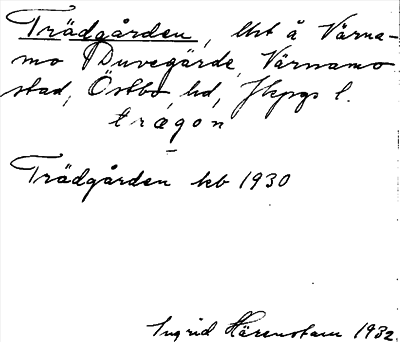 Trädgården, lht å Värna-
mo Duvegärde, Värnamo
stad, Östbo hd, Jkpgs l.
trægon
Trädgården kb 1930
Ingrid Härenstam 1932.